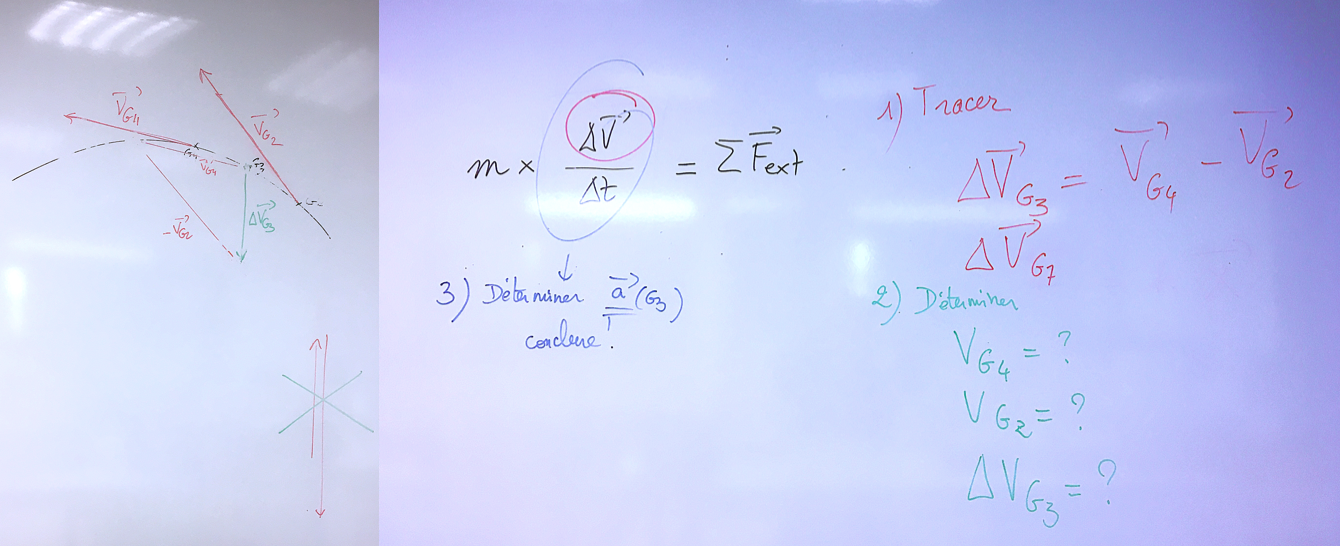 V⃗G4
V⃗G2
G4
G3
V⃗G4
ΔV⃗G3
-V⃗G2
m × ΔV⃗/Δt = ΣF⃗ext .
3) Déterminer a⃗(G3)
conclure !
1) Tracer
ΔV⃗G3 = V⃗G4 - V⃗G2
ΔV⃗G7
2) Déterminer
VG4 = ?
VG2 = ?
ΔVG3 = ?